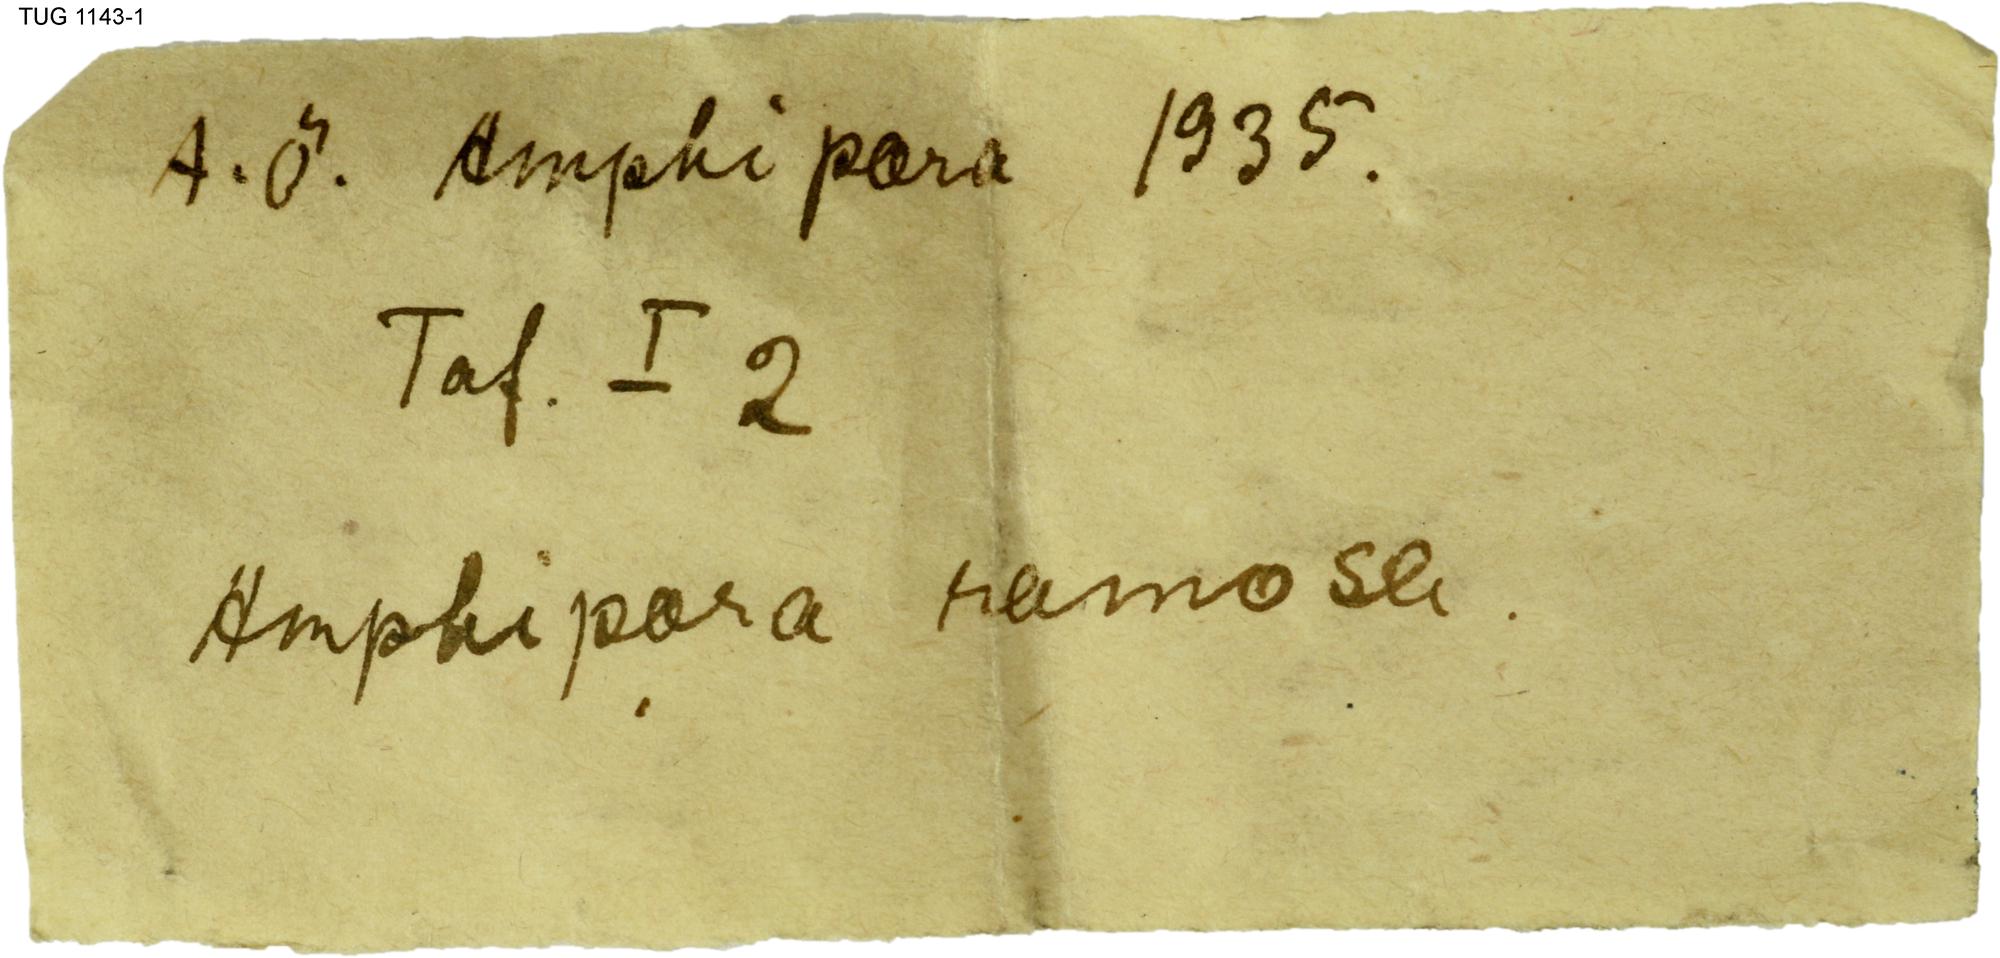 TUG 1143-1
A.Ö. Amphipora 1935.
Taf. I 2
Amphipora ramosa.